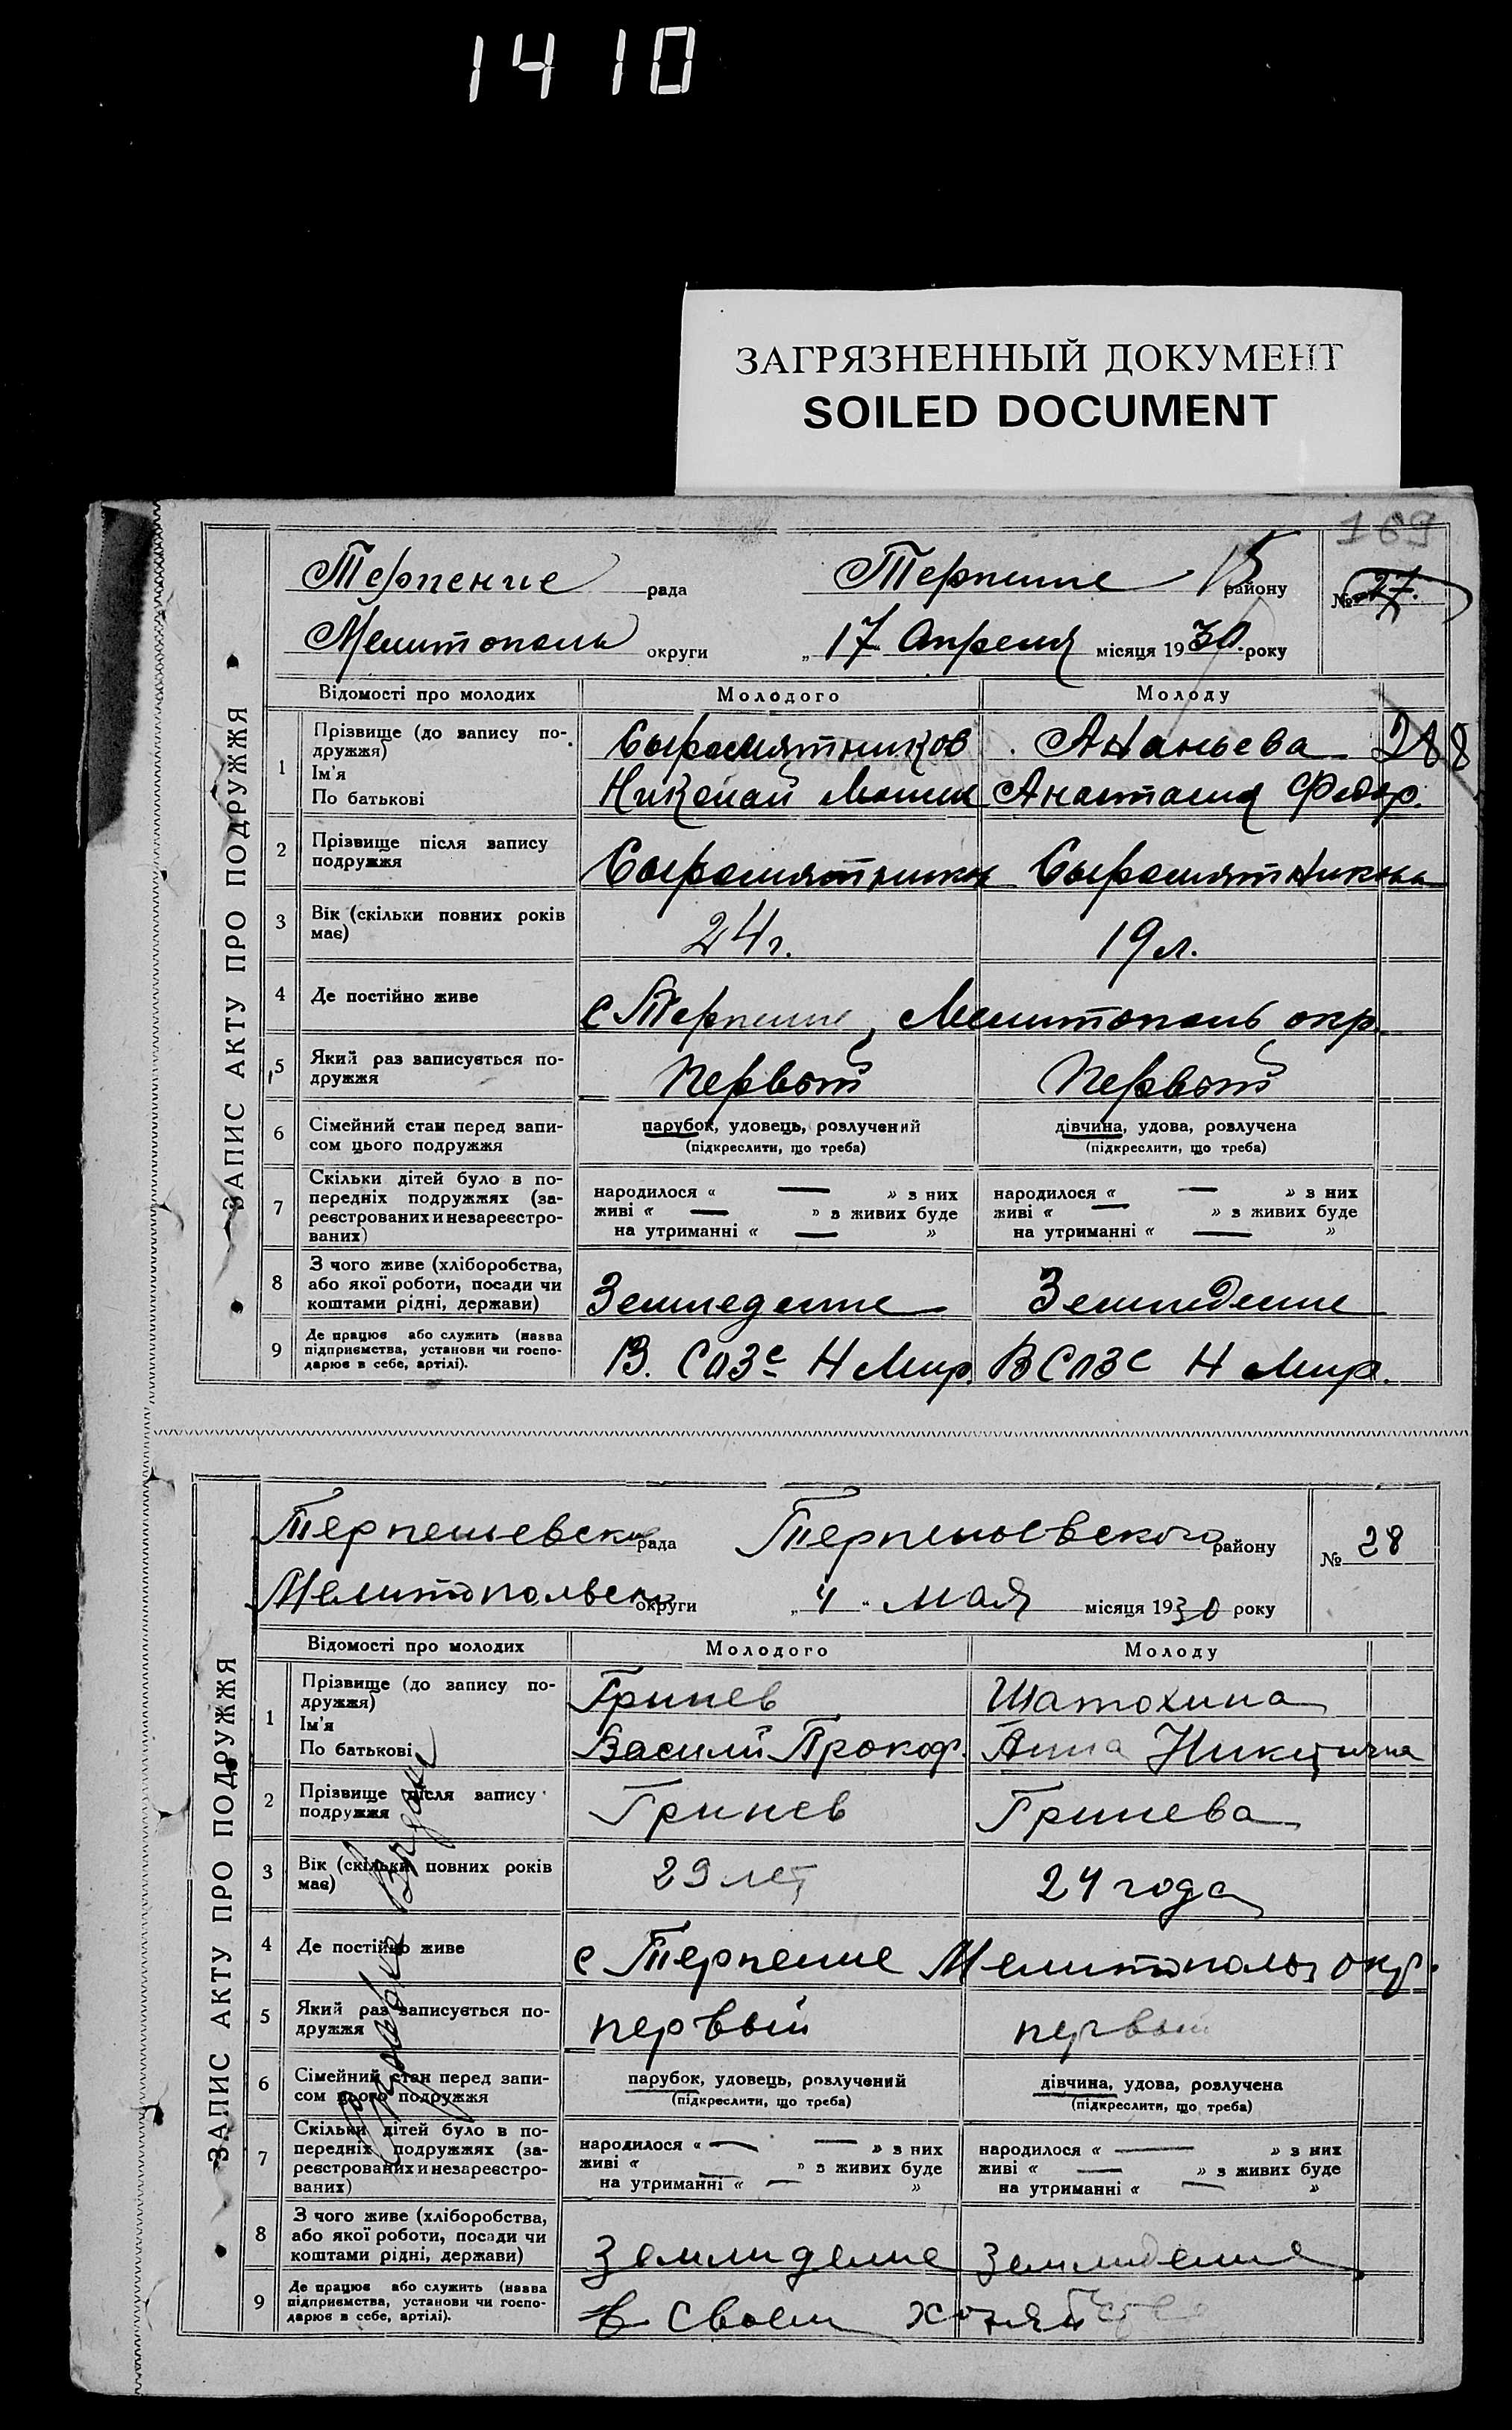 1410
ЗАГРЯЗНЕННЫЙ ДОКУМЕНТ
SOILED DOCUMENT
169
ЗАПИС АКТУ ПРО ПОДРУЖЖЯ
Терпение рада Терпение району № 27.
Мелитополь округи „17 Апреля місяця 1930 року
Відомості про молодих Молодого Молоду
1 Прізвище (до запису по-
дружжя) Сыромятников Ананьева 288
Ім'я
По батькові Николай Моисе Анастасия Федор.
2 Прізвище після запису
подружжя Сыромятников Сыромятникова
3 Вік (скільки повних років
має) 24 г. 19 л.
4 Де постійно живе с Терпение, Мелитополь окр.
5 Який раз записується по-
дружжя Первый Первый
6 Сімейний стан перед запи-
сом цього подружжя
парубок, удовець, розлучений дівчина, удова, розлучена
(підкреслити, що треба) (підкреслити, що треба)
7 Скільки дітей було в по-
передніх подружжях (за-
реєстрованих и незареєстро-
ваних)
народилося « — » з них народилося « — » з них
живі « — » з живих буде живі « — » з живих буде
на утриманні « — » на утриманні « — »
8 З чого живе (хліборобства,
або якої роботи, посади чи
коштами рідні, держави) Земледелие Земледелие
9 Де працює або служить (назва
підприємства, установи чи госпо-
дарює в себе, артілі). В. Созе Н Мир. В Созе Н Мир.
ЗАПИС АКТУ ПРО ПОДРУЖЖЯ
Терпеньевска рада Терпеньевского району № 28
Мелитопольск округи „4" мая місяця 1930 року
Відомості про молодих Молодого Молоду
1 Прізвище (до запису по-
дружжя) Гринев Шатохина
Ім'я
По батькові Василий Прокоф. Анна Никитична
2 Прізвище після запису
подружжя Гринев Гринева
3 Вік (скільки повних років
має) 29 лет 24 года
4 Де постійно живе с Терпение Мелитополь окр.
5 Який раз записується по-
дружжя первый первый
6 Сімейний стан перед запи-
сом цього подружжя
парубок, удовець, розлучений дівчина, удова, розлучена
(підкреслити, що треба) (підкреслити, що треба)
7 Скільки дітей було в по-
передніх подружжях (за-
реєстрованих и незареєстро-
ваних)
народилося « — » з них народилося « — » з них
живі « — » з живих буде живі « — » з живих буде
на утриманні « — » на утриманні « — »
8 З чого живе (хліборобства,
або якої роботи, посади чи
коштами рідні, держави) Землиделие Землиделие
9 Де працює або служить (назва
підприємства, установи чи госпо-
дарює в себе, артілі). в своем хозяйстве